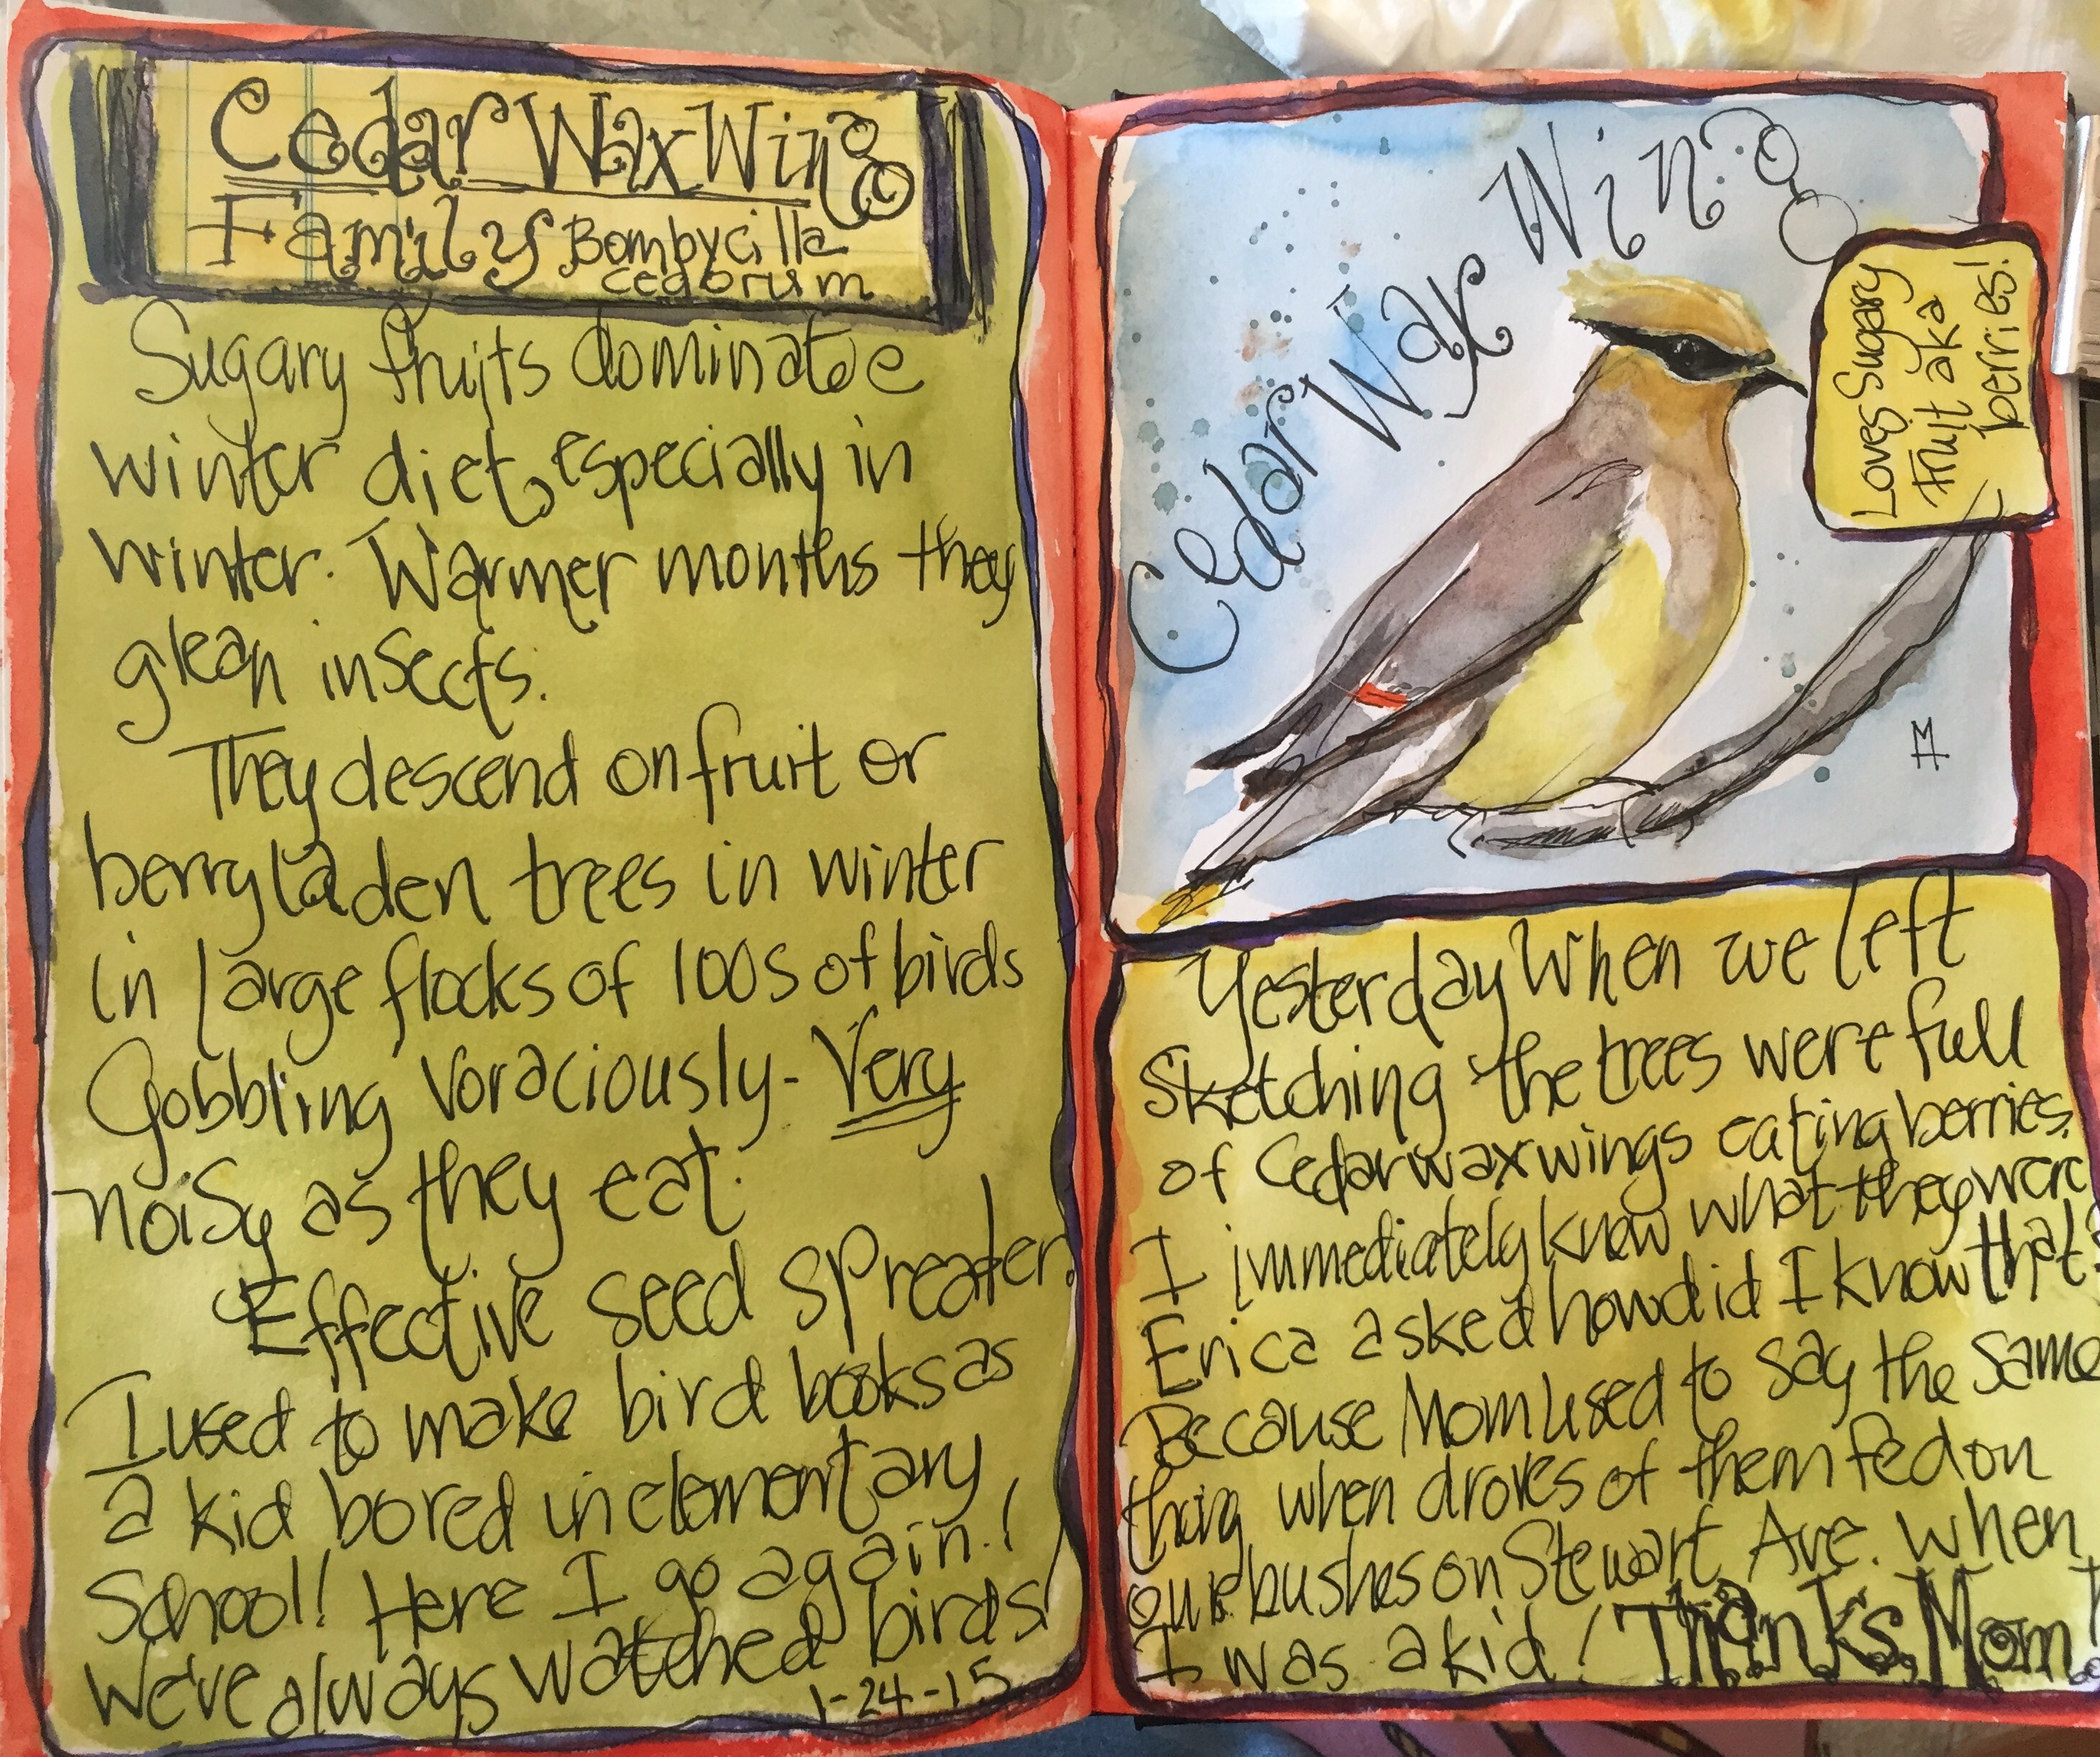 Cedar Wax Wing
Family Bombycilla
cedorum
Sugary fruits dominate
winter diet, especially in
winter. Warmer months they
glean insects.
They descend on fruit or
berry laden trees in winter
in large flocks of 100s of birds
Gobbling voraciously - Very
noisy as they eat.
Effective seed spreader.
I used to make bird books as
a kid bored in elementary
School! Here I go again!
We've always watched birds!
1-24-15
Cedar Wax Wing
Loves Sugary
fruit aka
berries!
M
Yesterday When we left
Sketching the trees were full
of Cedar waxwings eating berries.
I immediately knew what they were
Erica asked how did I know that?
Because Mom used to say the same
thing when droves of them fed on
our bushes on Stewart Ave. when
I was a kid! Thanks Mom!